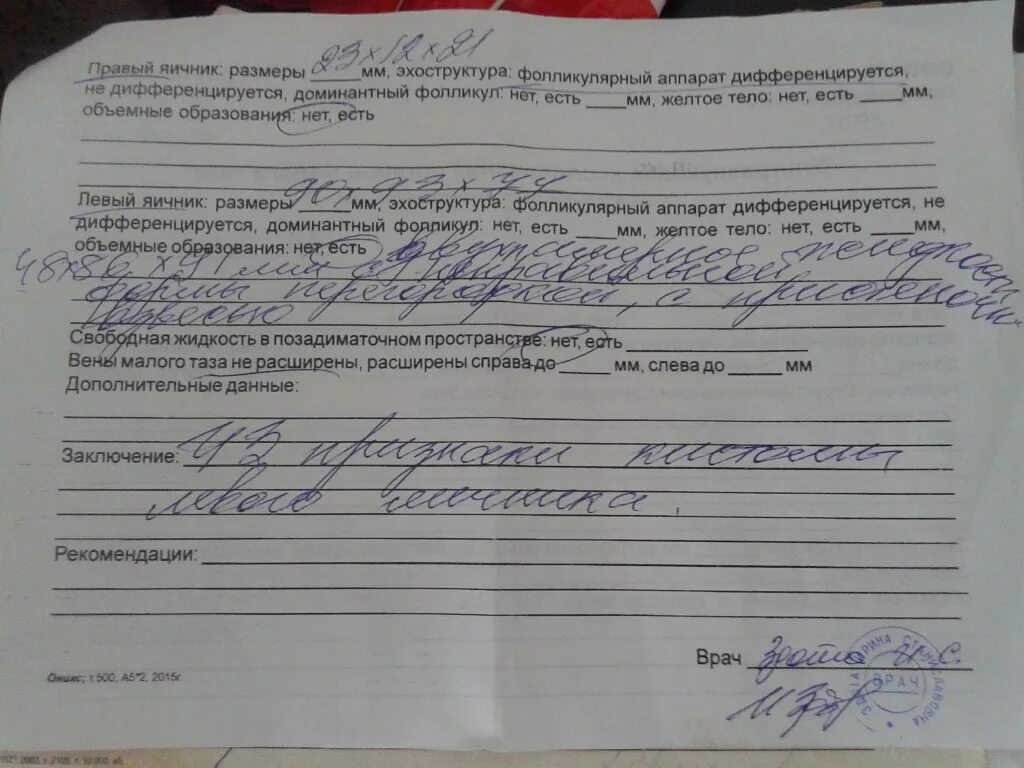 23х12х21
Правый яичник: размеры ____мм, эхоструктура: фолликулярный аппарат дифференцируется,
не дифференцируется, доминантный фолликул: нет, есть ____мм, желтое тело: нет, есть ____мм,
объемные образования: нет, есть
90х93х77
Левый яичник: размеры ____мм, эхоструктура: фолликулярный аппарат дифференцируется, не
дифференцируется, доминантный фолликул: нет, есть ____мм, желтое тело: нет, есть ____мм,
объемные образования: нет, есть двухкамерное
неправильной
формы перегородкой, с пристеночн
взвесью
Свободная жидкость в позадиматочном пространстве: нет, есть
Вены малого таза не расширены, расширены справа до ____ мм, слева до ____ мм
Дополнительные данные:
Заключение: УЗ признаки кистомы
левого яичника.
Рекомендации:
Врач
ВРАЧ
Оникс; т.500, А5*2, 2015г.